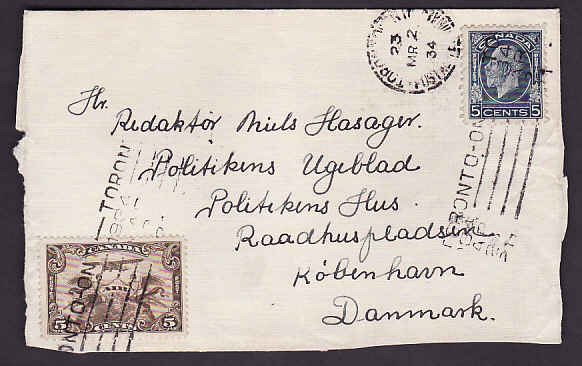 TORONTO
23
MR 2
34
CANADA
5 CENTS 5
Hr.
Redaktör Niels Hasager.
Politikens Ugeblad
Politikens Hus.
Raadhuspladsen
København
Danmark.
TORONTO-ON
CANADA
5 CENTS 5